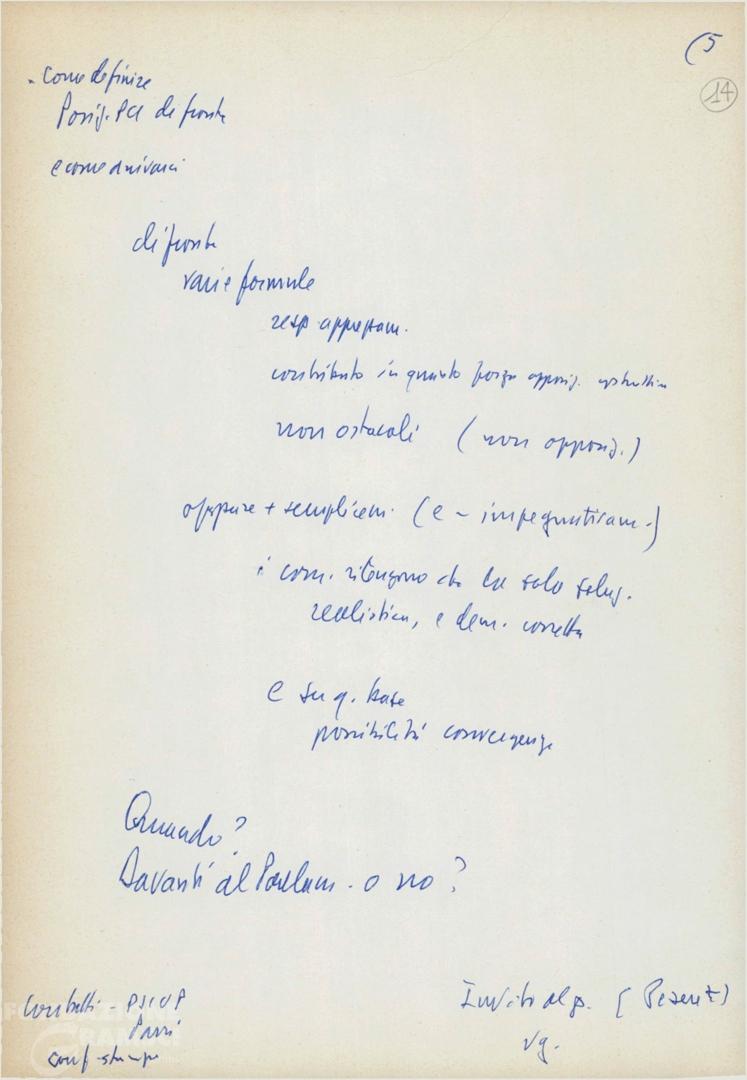 (5
14
- come definire
Posiz. PCI di fronte
e come arrivarci
di fronte
varie formule
resp. apprezzam.
contributo in quanto forza opposiz. costruttiva
non ostacoli (non opposiz.)
oppure + semplicem. (e - impegnativam.)
i com. ritengono che la sola soluz.
realistica, e dem. corretta
e su q. base
possibilità convergenze
Quando?
Davanti al Parlam. o no?
Contatti - PSIUP
Parri
conf-stampa
Invito al p. (Pesenti)
vg.
FONDAZIONE
GRAMSCI